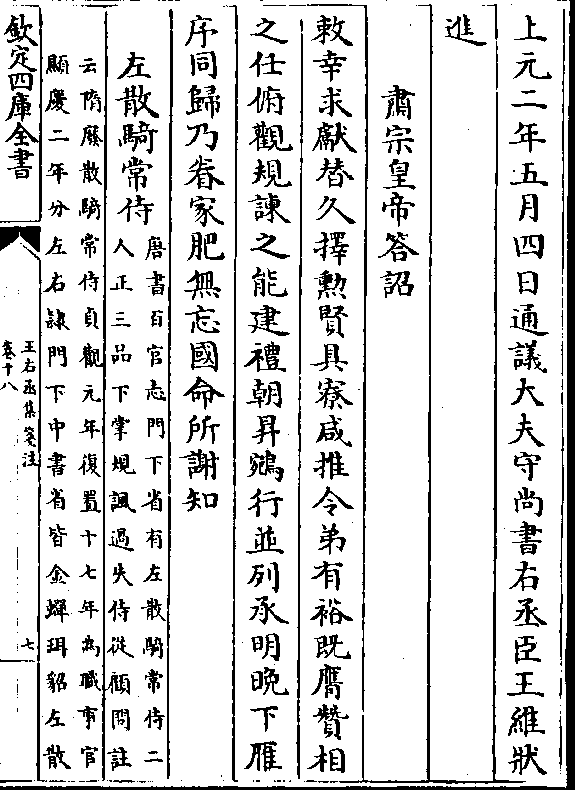 上元二年五月四日通議大夫守尚書右丞臣王維狀
進
肅宗皇帝答詔
敕幸求獻替久擇勲賢具寮咸推令弟有裕既膺贊相
之任俯觀規諫之能建禮朝昇鵷行並列承明晚下雁
序同歸乃眷家肥無忘國命所謝知
左散騎常侍
唐書百官志門下省有左散騎常侍二
人正三品下掌規諷過失侍從顧問註
云隋廢散騎常侍貞觀元年復置十七年為職事官
顯慶二年分左右隷門下中書省皆金蟬珥貂左散
欽定四庫全書
王右丞集箋注
卷十八
七